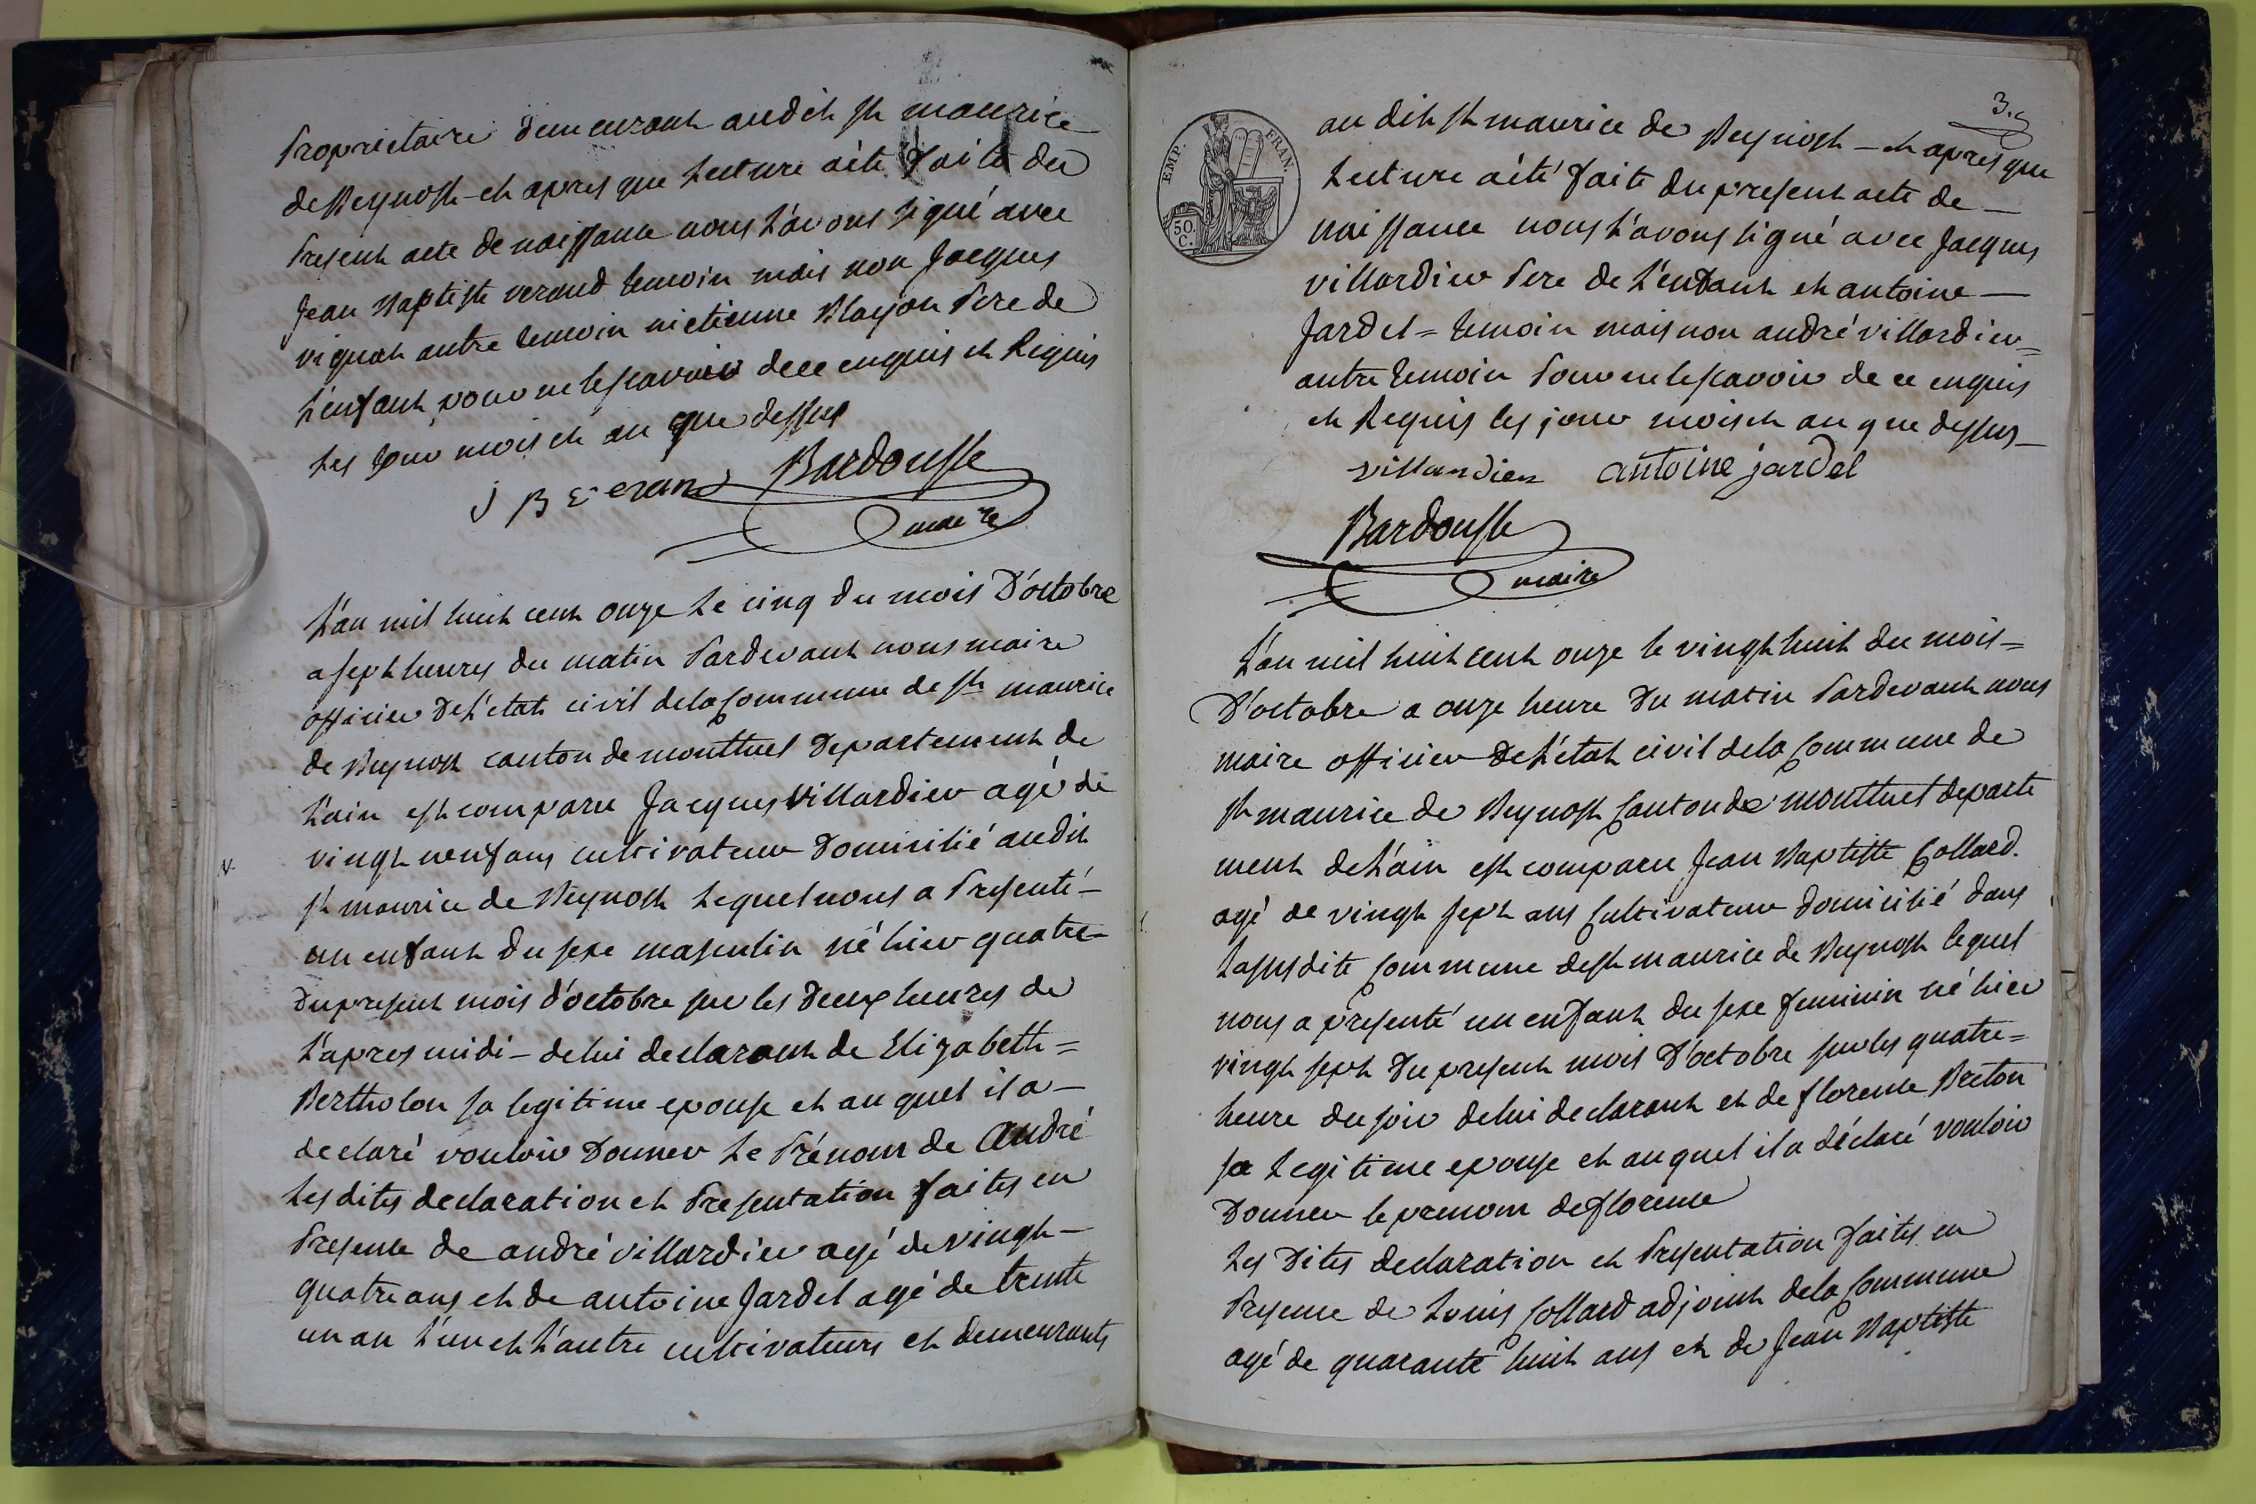 Proprietaire demeurant audit st maurice
de Beynost et apres que Lecture aété faite du
Present acte de naissance nous L'avons signé avec
Jean Baptiste verand temoin mais non Jacques
viquat autre temoin ni etienne Blayon Pere de
L'enfant pour ne le scavoir de ce enquis et Requis
Les jour mois et an que dessus
J B Verand Bardousse
maire
L'an mil huit cent onze Le cinq du mois D'octobre
a sept heures du matin Pardevant nous maire
officier De L'etat civil dela Commune de st maurice
de Beynost canton de montluel Departement de
L'ain est comparu Jacques Villardier agé de
vingt neuf ans cultivateur Domicilié audit
st maurice de Beynost Lequel nous a Presenté -
un enfant du sexe masculin né hier quatre
Du present mois d'octobre sur les Deux heures de
L'apres midi - de lui declarant de Elizabeth =
Bertholon sa legitime epouse et au quel il a -
declaré vouloir Donner Le Prénom de André
Les dites declaration et Presentation faites en
Presente de andré villardier agé de vingt -
quatre ans et de antoine Jardel agé de trente
un an L'un et L'autre cultivateurs et demeurants
3.
EMP. FRAN.
50.
C.
au dit st maurice de Beynost - et apres que
Lecture aété faite du present acte de -
naissance nous L'avons signé avec Jacques
villardier Pere de L'enfant et antoine -
Jardel = temoin mais non andré villardier =
autre temoin Pour ne le scavoir de ce enquis
et Requis les jour mois et an que dessus -
villardier antoine jardel
Bardousse
maire
L'an mil huit cent onze le vingt huit du mois =
D'octobre a onze heure Du matin Pardevant nous
maire officier De L'état civil dela Commune de
st maurice de Beynost Canton de montluel departe
ment de L'ain est comparu Jean Baptiste Collard.
agé de vingt sept ans Cultivateur domicilié dans
La susdite Commune de st maurice de Beynost lequel
nous a presenté un enfant du sexe feminin né hier
vingt sept Du present mois D'octobre sur les quatre =
heure du soir de lui declarant et de florence Breton
sa Legitime epouse et au quel il a déclaré vouloir
Donner le prenom de florence
Les Dites declaration et Presentation faites en
Presence de Louis Collard adjoint dela Commune
agé de quarante huit ans et de Jean Baptiste